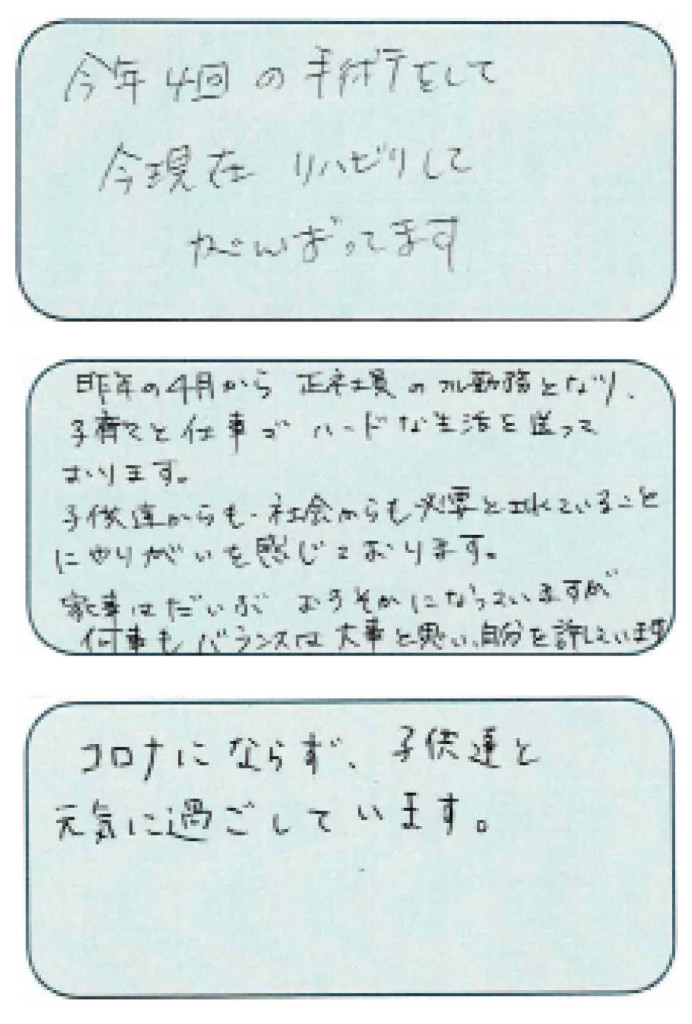 今年4回の手術をして
今現在 リハビリして
がんばってます
昨年の4月から 正社員のフル勤務となり、
子育てと仕事で ハードな生活を送って
おります。
子供達からも、社会からも必要とされていること
にやりがいを感じております。
家事はだいぶ おろそかになっていますが
何事もバランスは大事と思い、自分を許しています
コロナにならず、子供達と
元気に過ごしています。